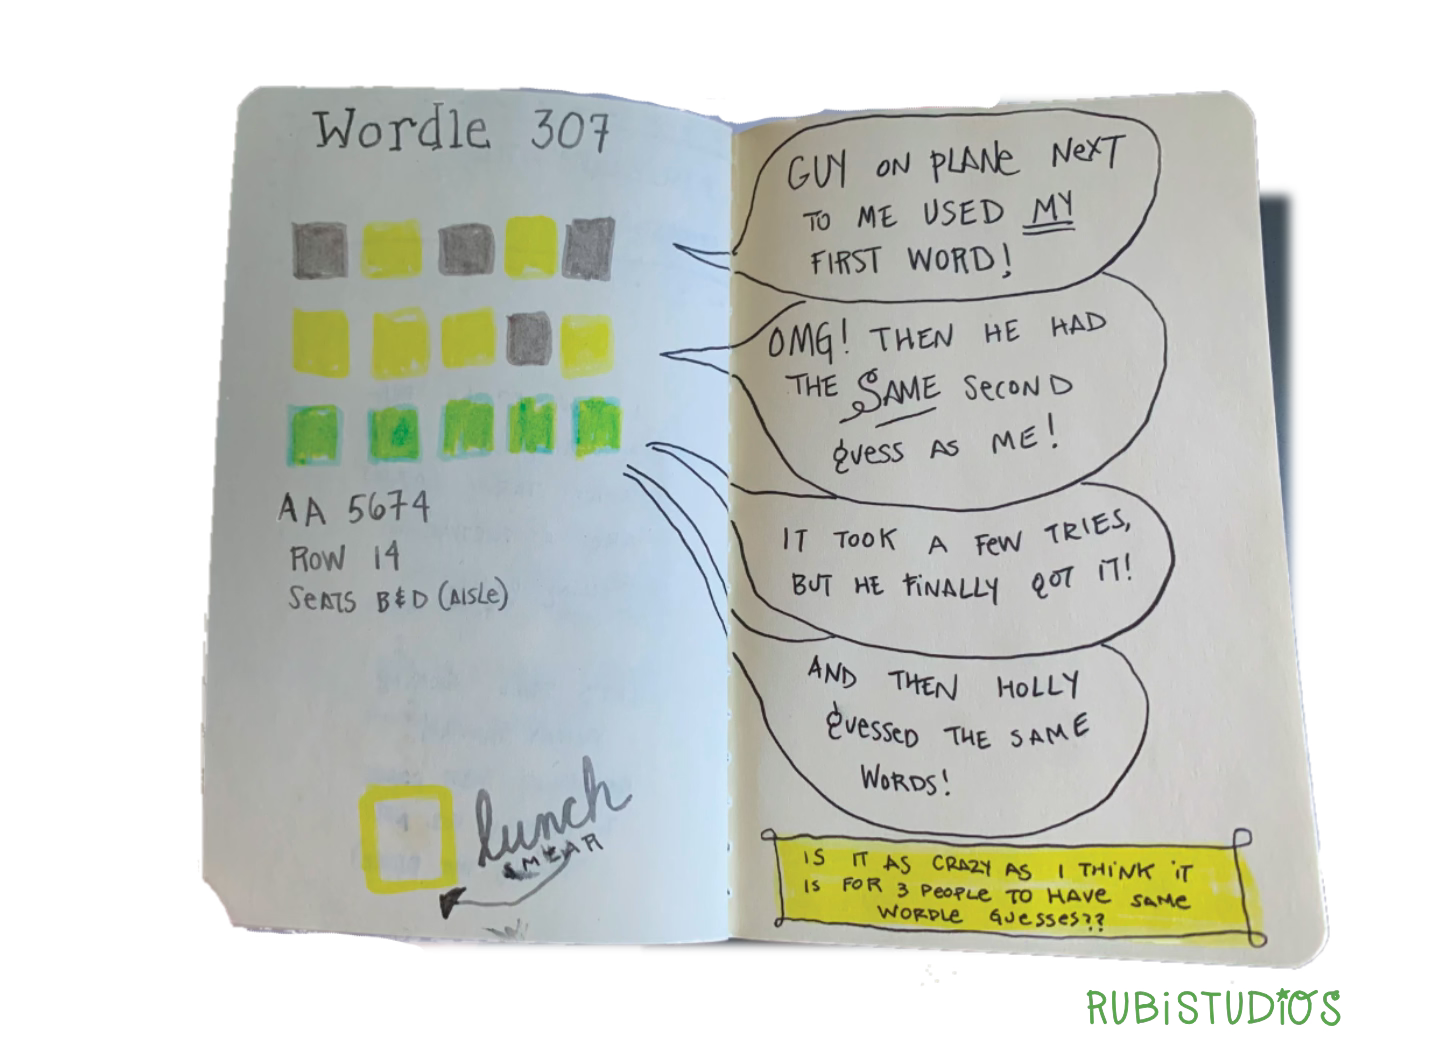 Wordle 307
AA 5674
ROW 14
SEATS B&D (AISLE)
lunch
SMEAR
GUY ON PLANE NEXT
TO ME USED MY
FIRST WORD!
OMG! THEN HE HAD
THE SAME SECOND
guess AS ME!
IT TOOK A FEW TRIES,
BUT HE FINALLY GOT IT!
AND THEN HOLLY
guessed THE SAME
WORDS!
IS IT AS CRAZY AS I THINK IT
IS FOR 3 PEOPLE TO HAVE SAME
WORDLE GUESSES??
RUBiSTUDiOS